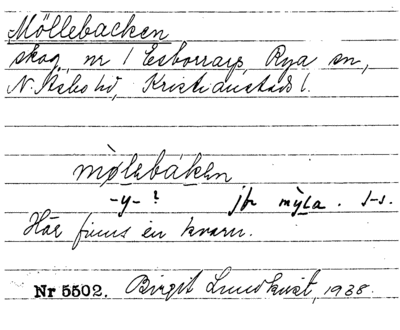 Möllebacken
skog, nr 1 Esborrarp, Rya sn,
N. Åsbo hd, Kristianstads l.
mø̀lebáken
-y- ? jfr mỳla. s-s.
Här finns en kvarn.
Nr 5502. Birgit Lundkvist, 1938.